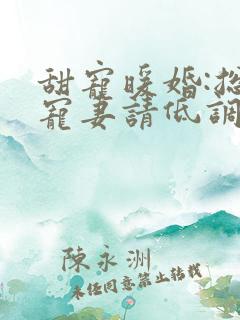 甜寵暖婚:總
寵妻請低調
陳永洲
未經同意禁止轉載